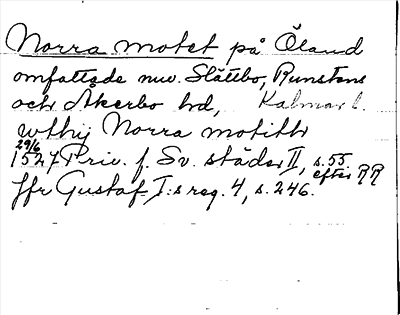 Norra motet på Öland
omfattade nuv. Slättbo, Runstens
och Åkerbo hd, Kalmar l.
wthij Norra motith
29/6
1527 Priv. f. Sv. städer II, s. 55
efter RR
Jfr Gustaf I:s reg. 4, s. 246.